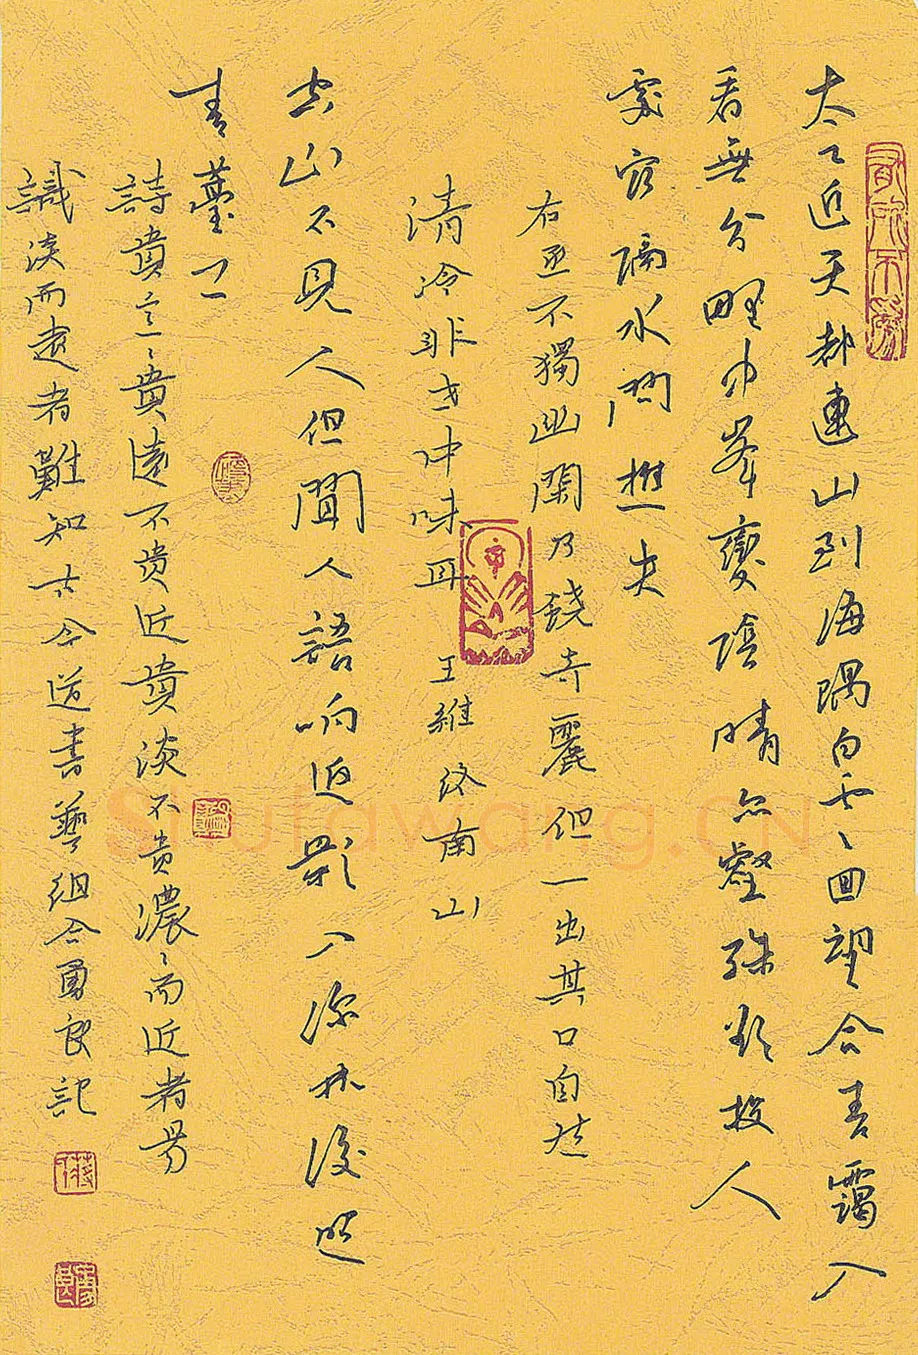 太乙近天都連山到海隅白雲〻回望合青靄入
看無分野中峯變陰晴众壑殊欲投人
處宿隔水問樵夫
右丞不獨幽闲乃饒奇麗但一出其口自然
清冷非世中味耳 王維終南山
空山不見人但聞人語响返影入深林復照
青薹上
詩貴意〻貴遠不贵近貴淡不贵濃〻而近者易
識淡而遠者難知 古今道書藝組合勇良記
Shufawang.CN